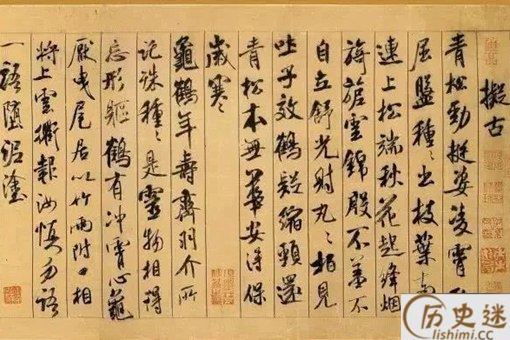 擬古
青松勁挺姿凌霄
屈盤種〻出枝葉
連上松端秋花起絳烟
旖旎雲錦殷不羞不
自立舒光射丸〻栢見
吐子效鶴疑縮頸還
青松本無華安得保
歲寒
龜鶴年壽齊羽介所
託殊種〻是靈物相得
忘形軀鶴有冲霄心龜
厭曳尾居以竹兩附口相
將上雲衢報汝慎勿語
一語墮泥塗
历史迷
lishimi.cc